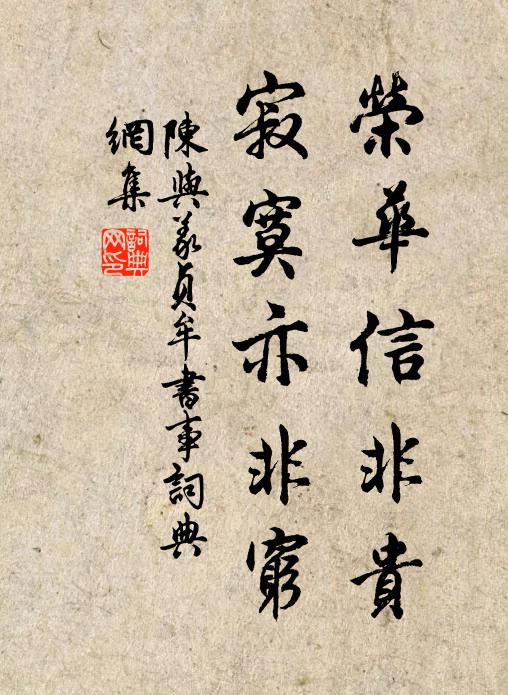 榮華信非貴
寂寞亦非窮
陳與義貞牟書事詞典
網集
詞典
网印